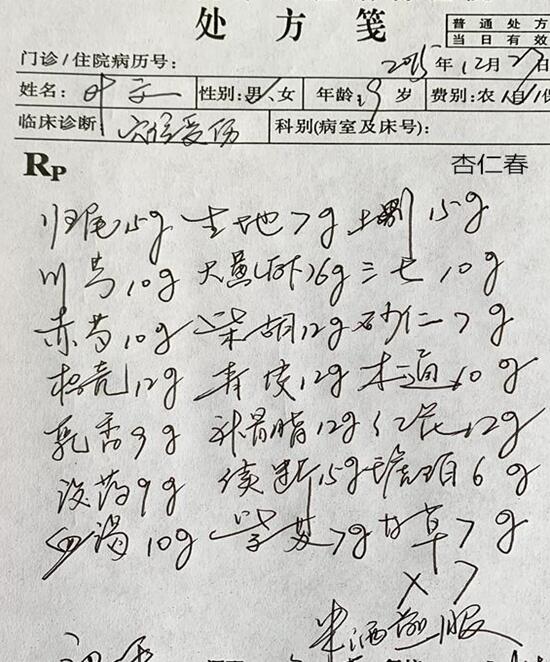 处方笺
普通处方
当日有效
门诊/住院病历号: 2015年12月27日
姓名: 叶 性别:男、女 年龄: 岁 费别:农 自
临床诊断 穴位受伤 科别(病室及床号):
RP 杏仁春
归尾15g 生地7g 土鳖15g
川芎10g 大黄(后下)6g 三七10g
赤芍10g 柴胡12g 砂仁7g
枳壳12g 青皮12g 木通10g
乳香9g 补骨脂12g 红花12g
没药9g 续断15g 琥珀6g
血竭10g 紫苏7g 甘草7g
×7
半酒煎服